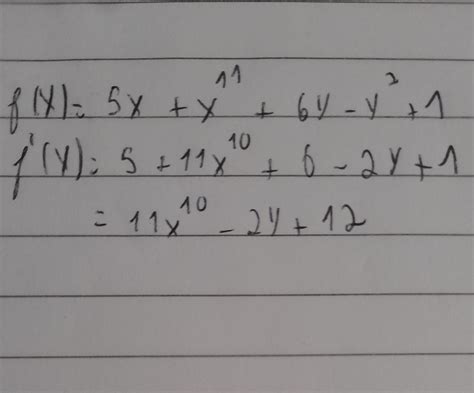 f(x) = 5x + x¹¹ + 6y - y² + 1
f'(y) = 5 + 11x¹⁰ + 6 - 2y + 1
= 11x¹⁰ - 2y + 12